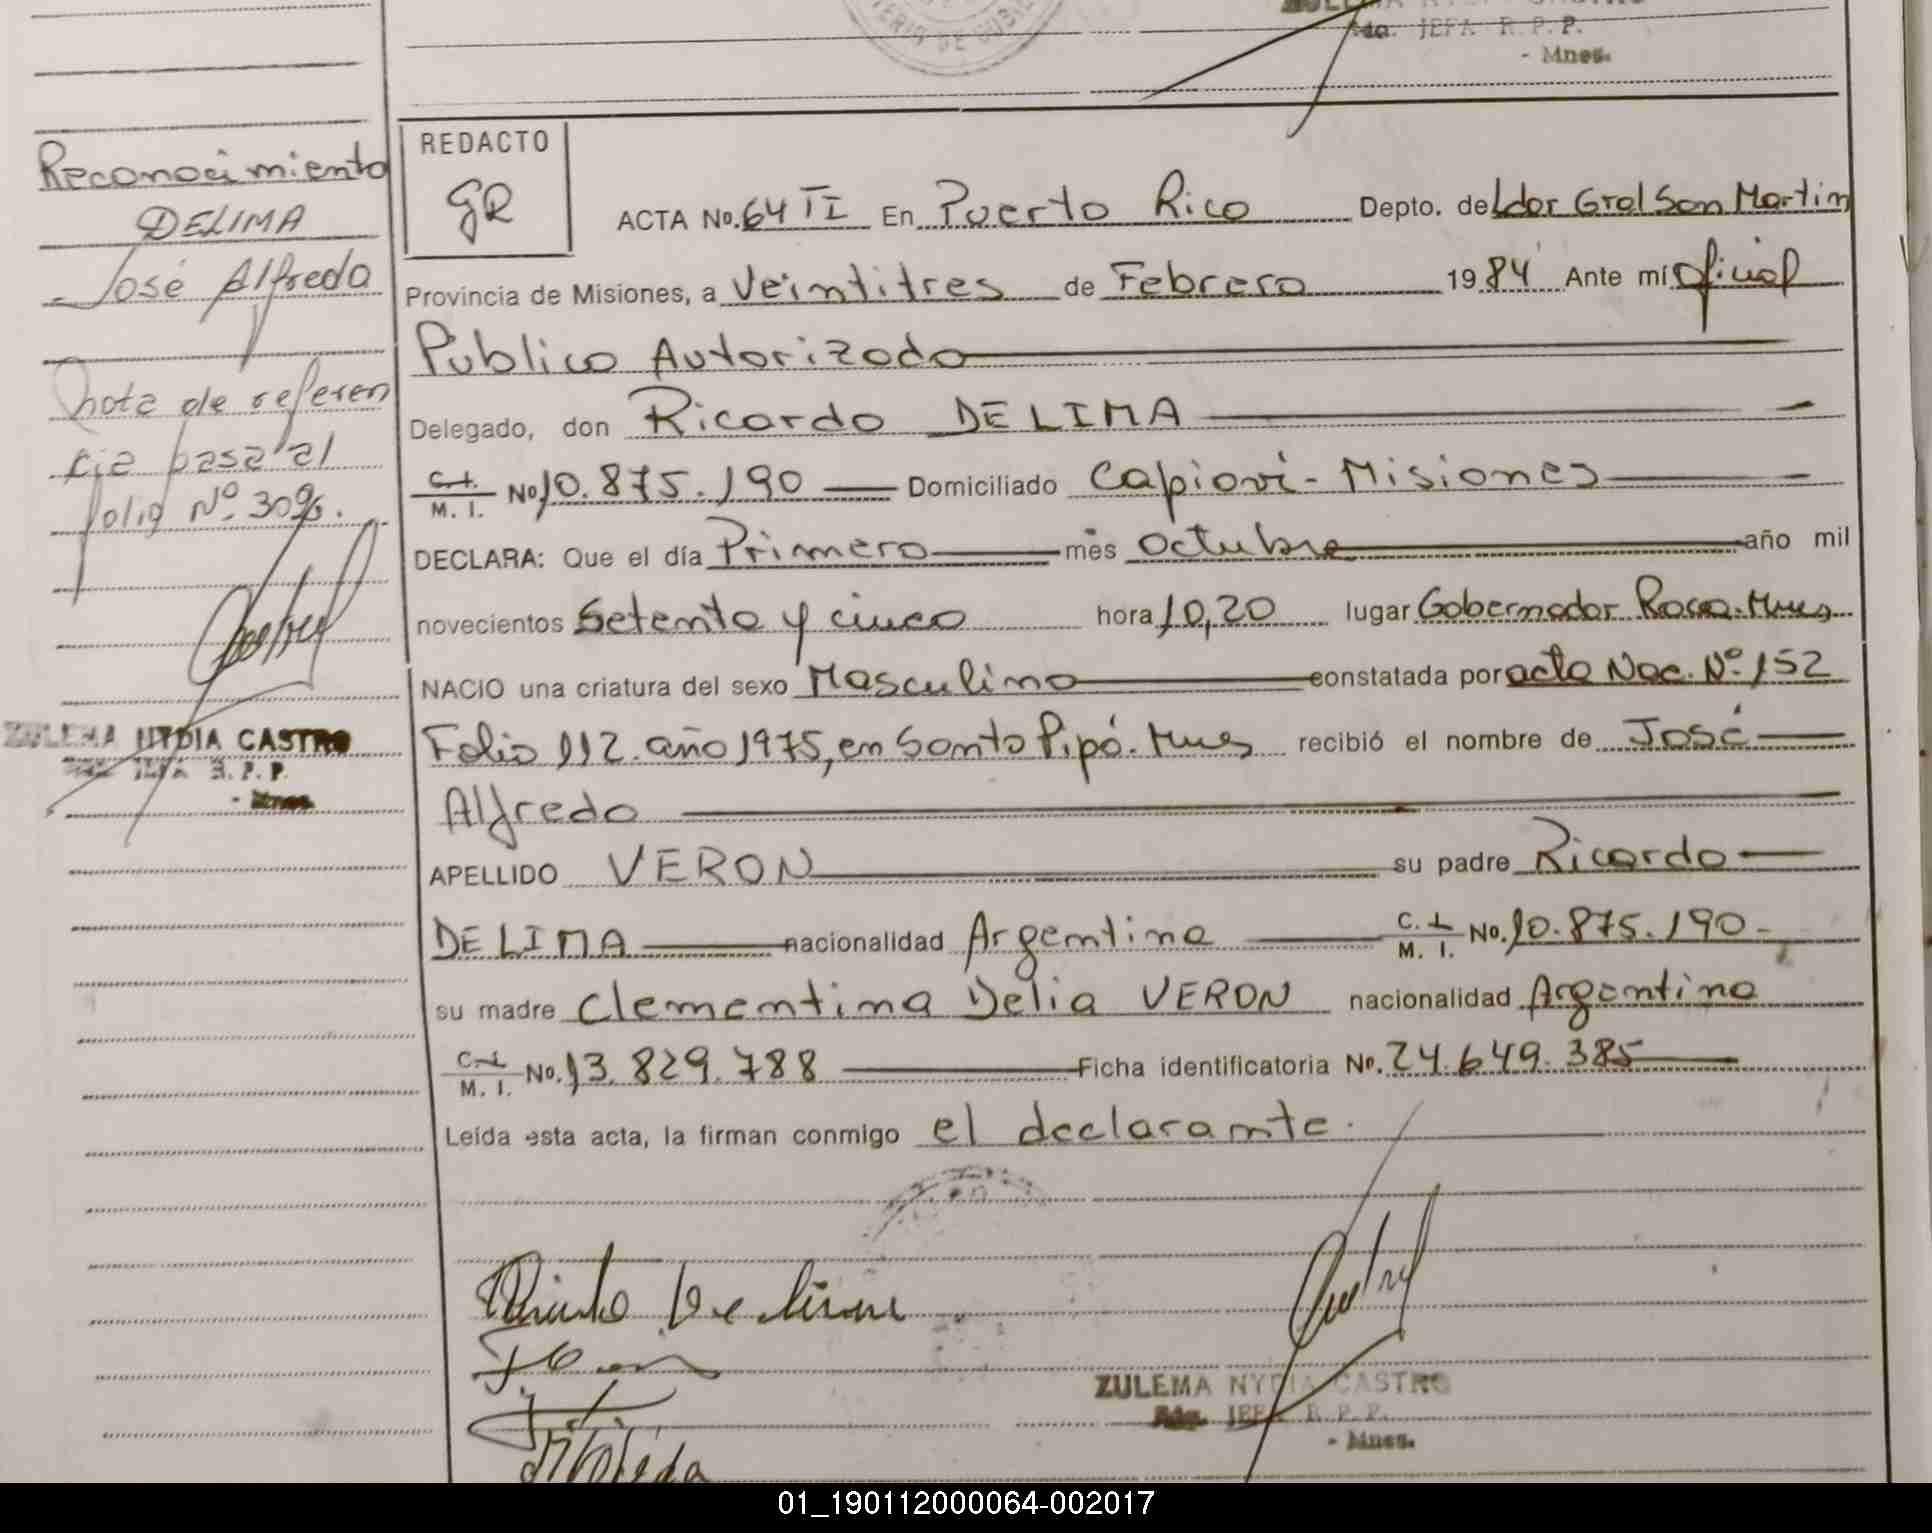 ZULEMA NYDIA CASTRO
Adq. JEFA R. P. P.
- Mnes.
Reconocimiento
DELIMA
José Alfredo
Nota de referen
cia pasa al
folio Nº 309.
ZULEMA NYDIA CASTRO
JEFA R. P. P.
- Mnes.
REDACTO
GR
ACTA No. 64 TI En Puerto Rico Depto. de Ldor Gral San Martin
Provincia de Misiones, a Veintitres de Febrero 1984 Ante mí Oficial
Público Autorizado
Delegado, don Ricardo DE LIMA
C.I. M. I. No 10.875.190 Domiciliado Capiovi - Misiones
DECLARA: Que el día Primero mes Octubre año mil
novecientos Setenta y cinco hora 10,20 lugar Gobernador Roca - Mnes
NACIO una criatura del sexo Masculino constatada por acta Nac. Nº 152
Folio 112. año 1975, en Santo Pipó. Mnes recibió el nombre de José
Alfredo
APELLIDO VERON su padre Ricardo
DE LIMA nacionalidad Argentina C. I. M. I. No. 10.875.190.-
su madre Clementina Delia VERON nacionalidad Argentina
C.I. M. I. No. 13.829.788 Ficha identificatoria No. 24.649.385
Leída esta acta, la firman conmigo el declarante.
ZULEMA NYDIA CASTRO
Adq. JEFA R. P. P.
- Mnes.
01_190112000064-002017